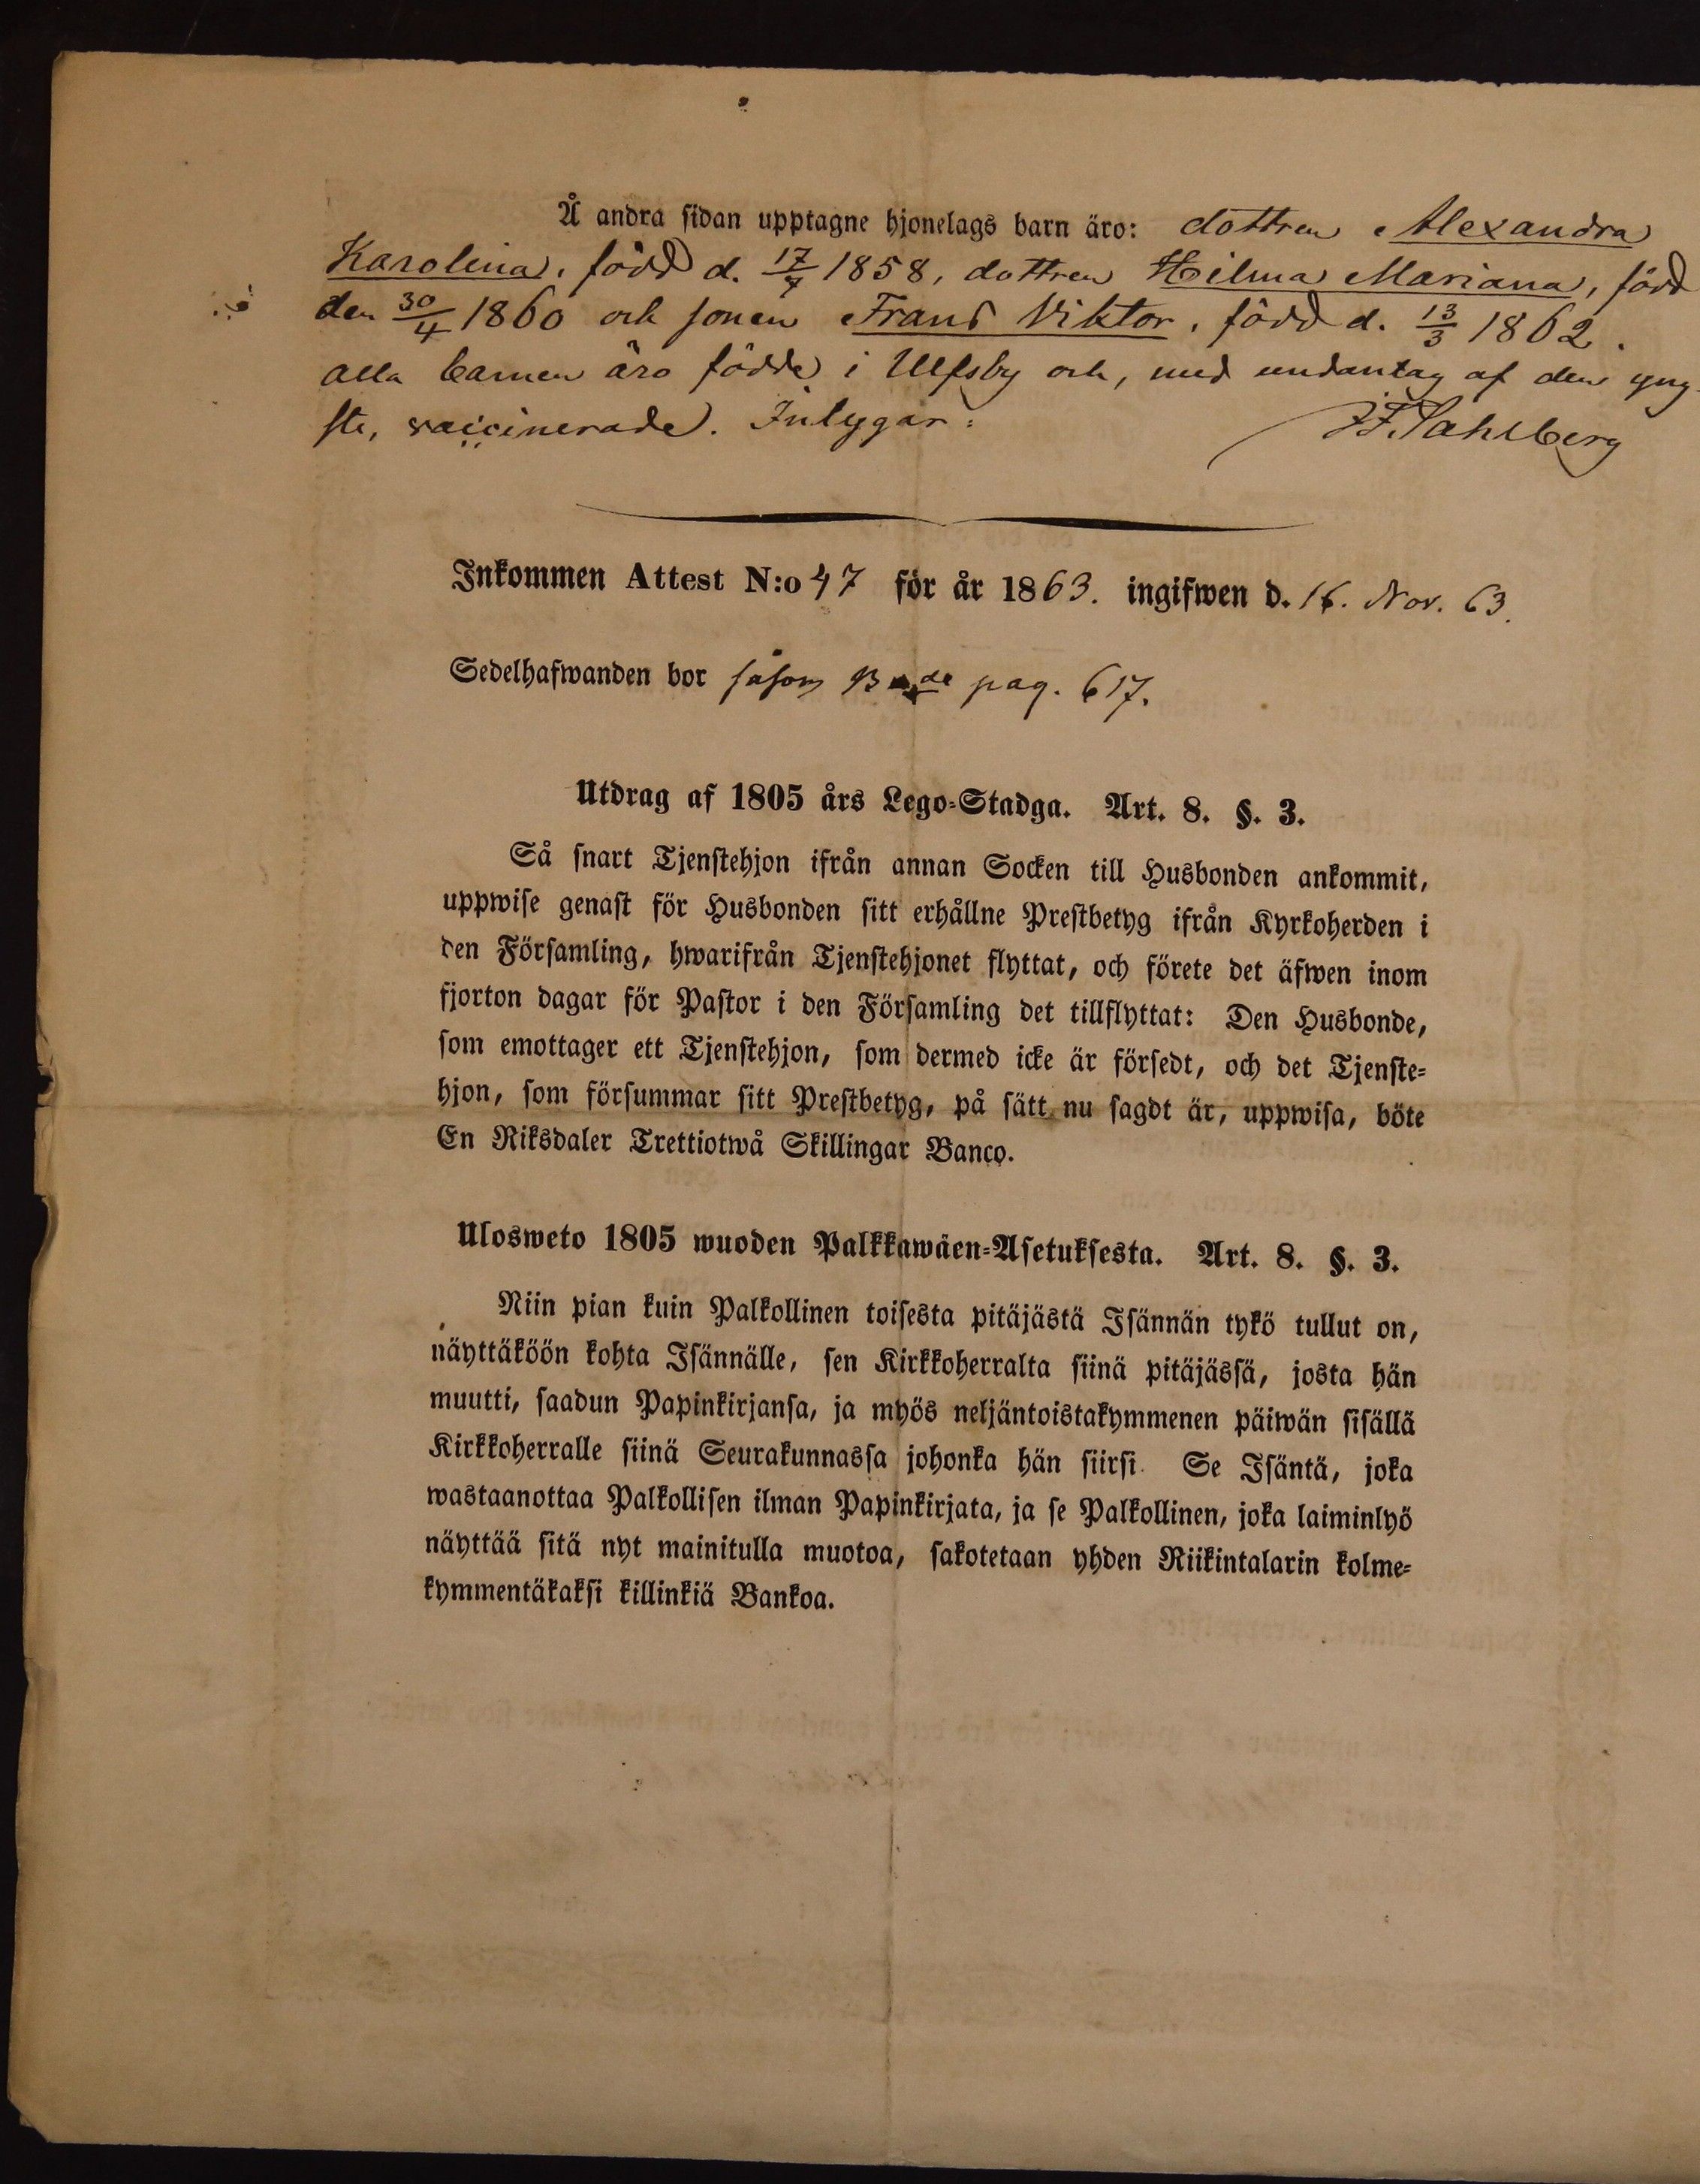 Å andra sidan upptagne hjonelags barn äro: dottren Alexandra
Karolina, född d. 17/7 1858, dottren Hilma Mariana, född
den 30/4 1860 och sonen Frans Viktor, född d. 13/3 1862.
alla barnen äro födde i Ulfsby och, med undantag af den yng-
ste, vaccinerade. Intygar:
JF.Sahlberg
Inkommen Attest N:o 47 för år 1863. ingifwen d. 16. Nov. 63.
Sedelhafwanden bor såsom pag. 617.
Utdrag af 1805 års Lego-Stadga. Art. 8. §. 3.
Så snart Tjenstehjon ifrån annan Socken till Husbonden ankommit,
uppwise genast för Husbonden sitt erhållne Prestbetyg ifrån Kyrkoherden i
den Församling, hwarifrån Tjenstehjonet flyttat, och förete det äfwen inom
fjorton dagar för Pastor i den Församling det tillflyttat: Den Husbonde,
som emottager ett Tjenstehjon, som dermed icke är försedt, och det Tjenste-
hjon, som försummar sitt Prestbetyg, på sätt nu sagdt är, uppwisa, böte
En Riksdaler Trettiotwå Skillingar Banco.
Ulosweto 1805 wuoden Palkkawäen-Asetuksesta. Art. 8. §. 3.
Niin pian kuin Palkollinen toisesta pitäjästä Isännän tykö tullut on,
näyttäköön kohta Isännälle, sen Kirkkoherralta siinä pitäjässä, josta hän
muutti, saadun Papinkirjansa, ja myös neljäntoistakymmenen päiwän sisällä
Kirkkoherralle siinä Seurakunnassa johonka hän siirsi. Se Isäntä, joka
wastaanottaa Palkollisen ilman Papinkirjata, ja se Palkollinen, joka laiminlyö
näyttää sitä nyt mainitulla muotoa, sakotetaan yhden Riikintalarin kolme-
kymmentäkaksi killinkiä Bankoa.